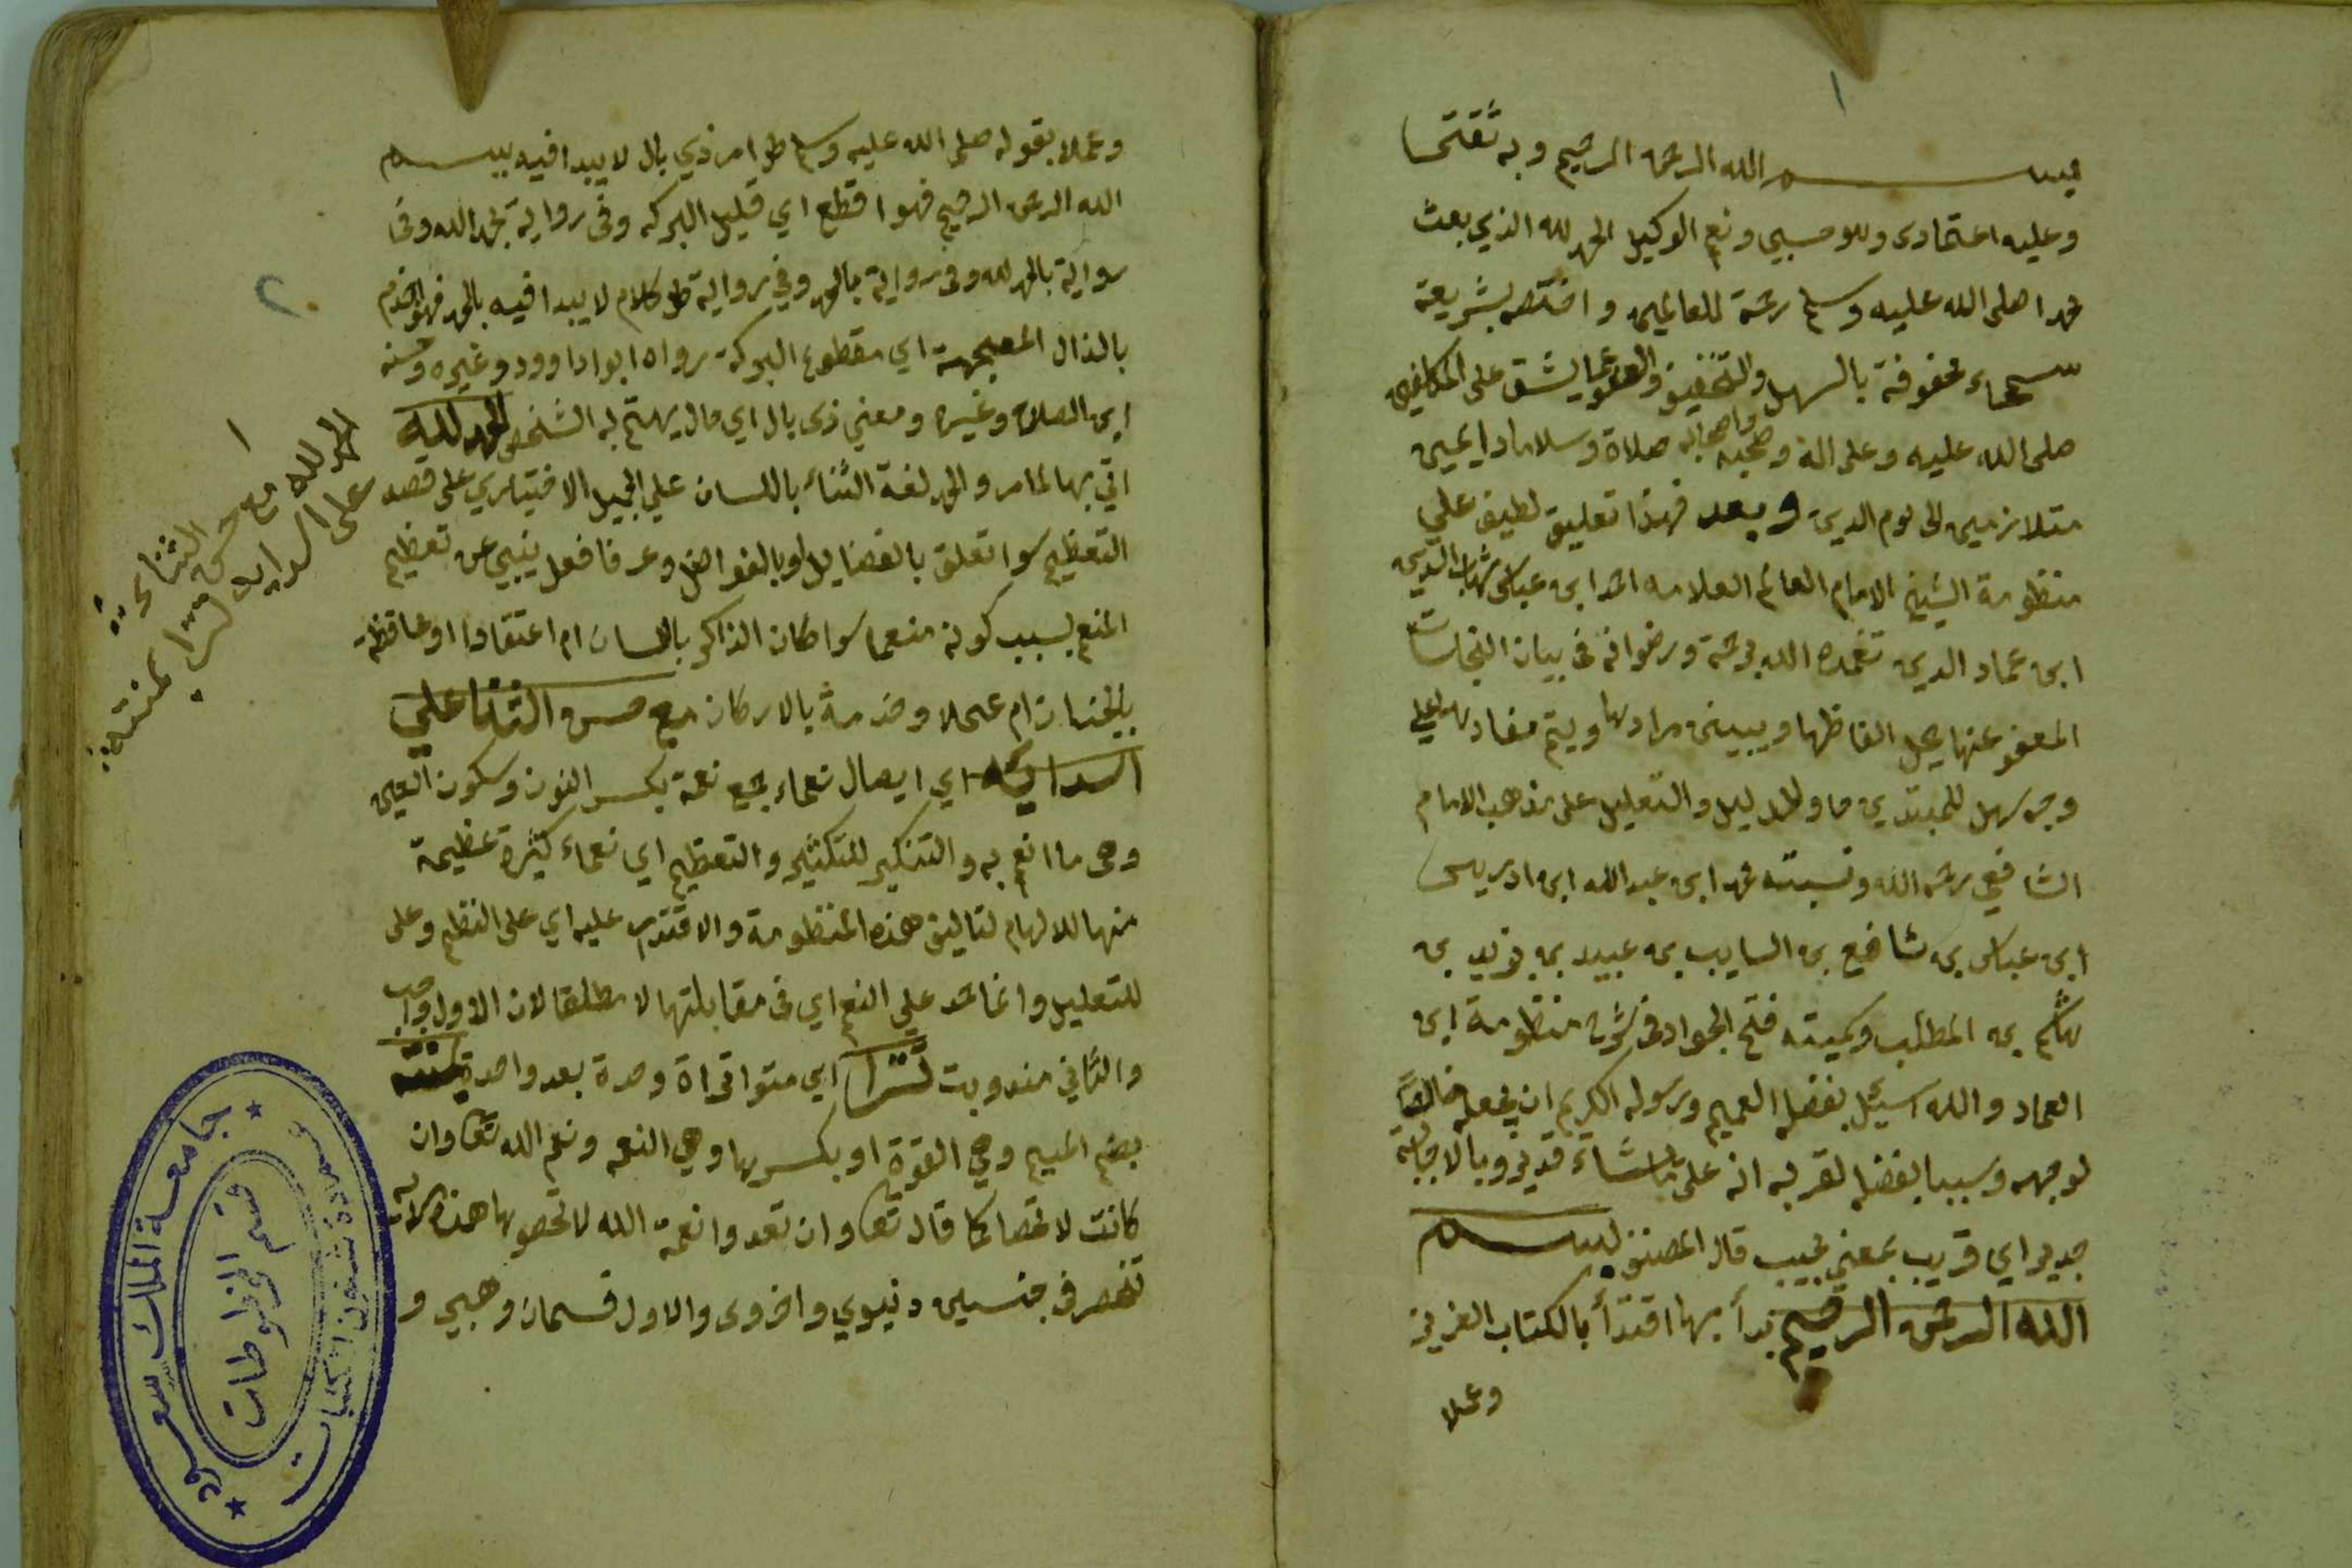 ١
بسم الله الرحمن الرحيم وبه ثقتي
وعليه اعتمادى وهو حسبي ونعم الوكيل الحمد لله الذي بعث
محمدا صلى الله عليه وسلم رحمة للعالمين واختصه بشريعة
سمحاء محفوفة بالسهل والتخفيف والعفو عما يشق على المكلفين
صلى الله عليه وعلى اله وصحبه صلاة وسلاما دايمين
متلازمين الى يوم الدين وبعد فهذا تعليق لطيف على
منظومة الشيخ الامام العالم العلامه احمد ابن عماد شهاب الدين
ابن عماد الدين تغمده الله برحمته ورضوانه في بيان النجاسات
المعفو عنها يحل الفاظها ويبين مرادها ويتم مفادها على
وجه سهل للمبتدي حاو للدليل والتعليل على مذهب الامام
الشافعي رحمه الله ونسبته محمد ابن عبد الله ابن ادريس
ابن عباس بن شافع بن السايب بن عبيد بن يزيد بن
هاشم بن المطلب وسميته فتح الجواد في شرح منظومة ابن
العماد والله اسئل بفضله العميم ورسوله الكريم ان يجعله خالصا
لوجهه وسببا لفضل لقربه انه على ما يشاء قدير وبالاجابة
جدير اي قريب بمعني مجيب قال المصنف بسم
الله الرحمن الرحيم بدأ بها اقتدأ بالكتاب العزيز
وعملا
وعملا بقوله صلى الله عليه وسلم كل امر ذي بال لا يبدا فيه ببسم
الله الرحمن الرحيم فهو اقطع اي قليل البركه وفي رواية بحمد الله وفي
رواية بالحمد لله وفي رواية بالحمد وفي رواية كل كلام لا يبدا فيه بالحمد فهو اجذم
بالذال المعجمة اي مقطوع البركة رواه ابو داوود وغيره وحسنه
ابن الصلاح وغيره ومعني ذى بال اي حال يهتم به الشخص الحمد لله
اتي بها لما مر والحمد لغة الثناء باللسان علي الجميل الاختياري على قصد
التعظيم سوا تعلق بالفضايل او بالفواضل وعرفا فعل ينبي عن تعظيم
المنعم بسبب كونه منعما سوا كان الذاكر باللسان ام اعتقادا او محافظة
بالجنان ام عملا وخدمة بالاركان مع حسن الثنا علي
اسدائه اي ايصال نعماء جمع نعمة بكسر النون وسكون العين
وهى ما انعم به والتنكير للتكثير والتعظيم اي نعماء كثيرة عظيمة
منها الالهام لتاليف هذه المنظومة والاقتدار عليه اي على النظم وعلى
للتعليل وانما حمد على النعم اي في مقابلتها لا مطلقا لان الاول واجب
والثاني مندوب تترا اي متواترة وحدة بعد واحدة بمنته
بضم الميم وهي القوة او بكسرها وهي النعمه ونعم الله تعا وان
كانت لا تحصا كما قال تعا وان تعدوا نعمة الله لا تحصوها هذه
تنحصر في جنسين دنيوي واخروى والاول قسمان وهبي و
الحمد لله مع حسن الثناء
على اسدايه تترا بمنته
٢
جامعة الملك سعود
عمادة شئون المكتبات
قسم المخطوطات